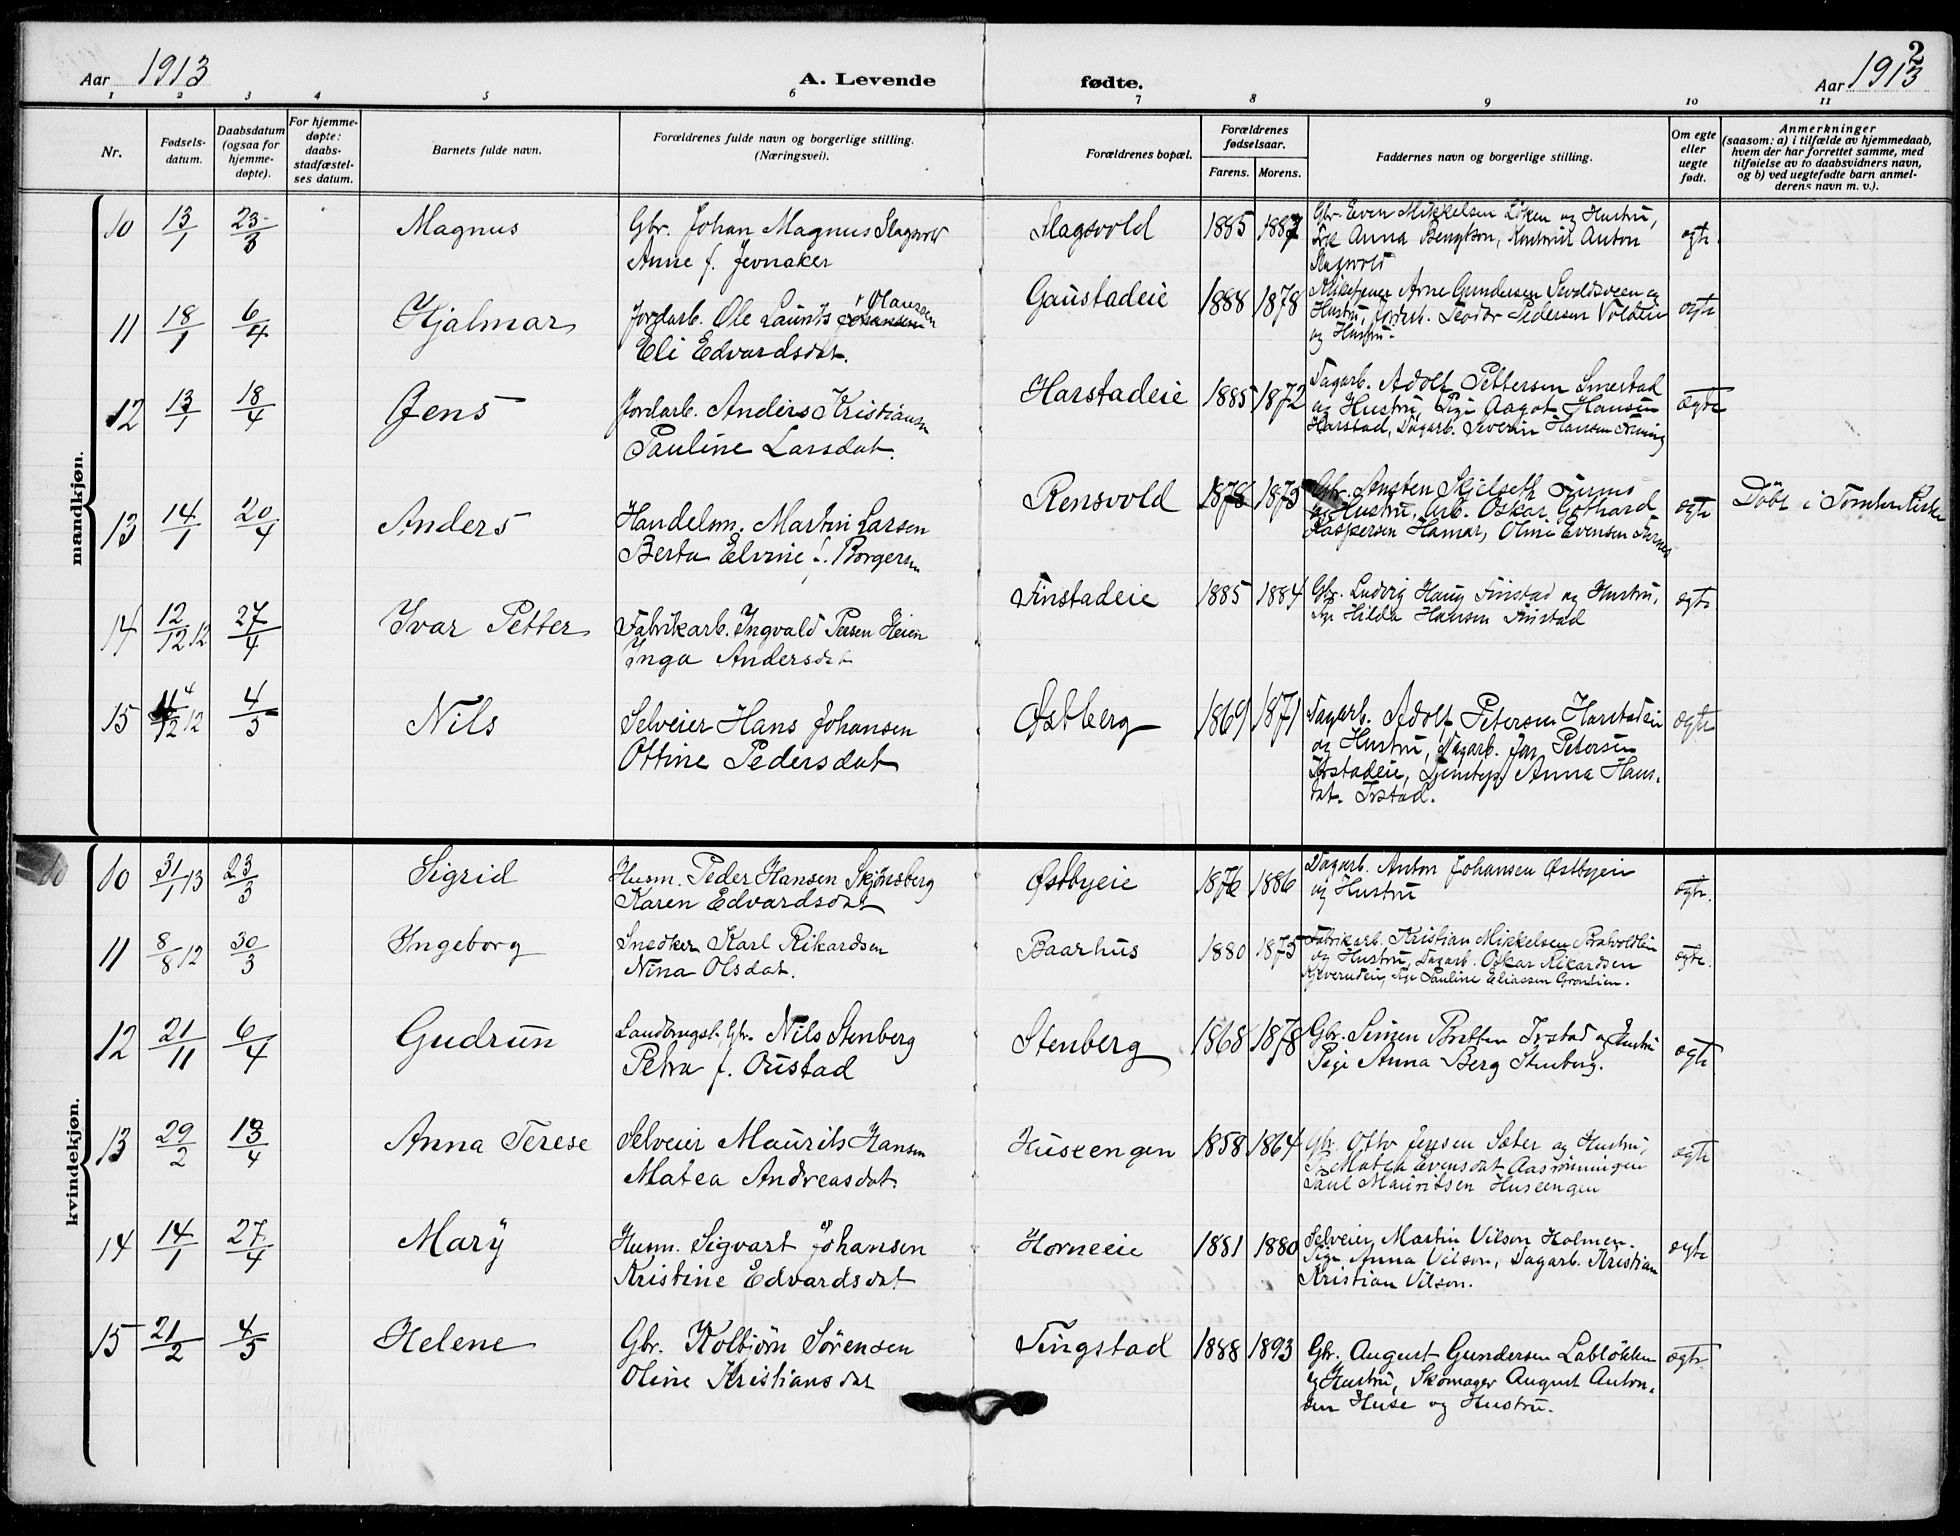 2
Aar 1913
A. Levende fødte.
Aar 1913
1 2 3 4 5 6 7 8 9 10 11
Nr.
Fødsels-
datum.
Daabsdatum
(ogsaa for
hjemme-
døpte).
For hjemme-
døpte:
daabs-
stadfæstel-
ses datum.
Barnets fulde navn.
Forældrenes fulde navn og borgerlige stilling.
(Næringsvei).
Forældrenes bopæl.
Forældrenes
fødselsaar.
Farens. Morens.
Faddernes navn og borgerlige stilling.
Om egte
eller
uegte
født.
Anmerkninger
(saasom: a) i tilfælde av hjemmedaab,
hvem der har forrettet samme, med
tilføielse av to daabsvidners navn,
og b) ved uegtefødte barn anmel-
derens navn m. v.).
mandkjøn.
10 13/1 23/3 Magnus
Gbr. Johan Magnus Slagsvold
Anne f. Jevnaker
Slagsvold 1885 1887
Gbr. Even Mikkelsen Löken og Hustru,
Anna Bengtson, Anton
Slagsvold
egte
11 18/1 6/4 Hjalmar
Jordarb. Ole Laurits Johansen Olausen
Eli Edvardsdat.
Gaustadeie 1888 1878
Arne Gundersen og
Hustru, Jordarb. Teodor Pedersen
og Hustru.
egte
12 13/1 18/4 Jens
Jordarb. Anders Kristiansen
Pauline Larsdat.
Harstadeie 1885 1872
Dagarb. Adolf Pettersen Smestad
og Hustru, Pige Aagot Hansen
Harstad, Dagarb. Severin Hansen
Ægte
13 14/1 20/4 Anders
Handelsm. Martin Larsen
Berta Elvine f. Borgersen
Rensvold 1878 1875
Gbr. Ansten Skjelseth Furnes
og Hustru, Arb. Oskar Gothard
Kaspersen Hamar, Oline Evensen Furnes
egte
Döbt i Tomter Kirke
14 12/12 12 27/4 Ivar Petter
Fabrikarb. Ingvald Peersen Heien
Inga Andersdat
Finstadeie 1885 1884
Gbr. Ludvig Haug Finstad og Hustru,
Pige Hilda Hansen Finstad
egte
15 4/12 12 4/5 Nils
Selveier Hans Johansen
Ottine Pedersdat
Østberg 1869 1871
Dagarb. Adolf Petersen Harstadeie
og Hustru, Dagarb. Petersen
Anna Hans-
dat. Irstad.
ægte
kvindekjøn.
10 31/1 13 23/3 Sigrid
Husm. Peder Hansen Skjønsberg
Karen Edvardsdat
Østbyeie 1876 1886
Dagarb. Anton Johansen Østbyeie
og Hustru
egte.
11 8/8 12 30/3 Ingeborg
Snedker Karl Rikardsen
Nina Olsdat.
Baarhus 1880 1875
Fabrikarb. Kristian Mikkelsen
og Hustru, Dagarb. Oskar Rikardsen
Pige Pauline Eliassen
egte.
12 21/11 6/4 Gudrun
Landbrugsk. Gbr. Nils Stenberg
Petra f. Oustad
Stenberg 1868 1878
Gbr. Simen Bratten Irstad og Hustru
Pige Anna Berg Stenberg.
egte
13 29/2 13/4 Anna Terese
Selveier Maurits Hansen
Matea Andreasdat.
Huseengen 1858 1864
Gbr. Otto Jensen Sæter og Hustru,
Matea Evensdat Aasrönningen
Paul Mauritsen Huseengen
ægte
14 14/1 27/4 Mary
Husm. Sigvart Johansen
Kristine Edvardsdat
Horneeie 1881 1880
Selveier Martin Vilson Holmen.
Pige Anna Vilson, Dagarb. Kristian
Kristian Vilson.
ægte
15 21/2 4/5 Helene
Gbr. Kolbjørn Sørensen
Oline Kristiansdat
Tingstad 1888 1893
Gbr. August Gundersen Labløkken
og Hustru, Skomager August Anton-
sen Huse og Hustru.
ægte